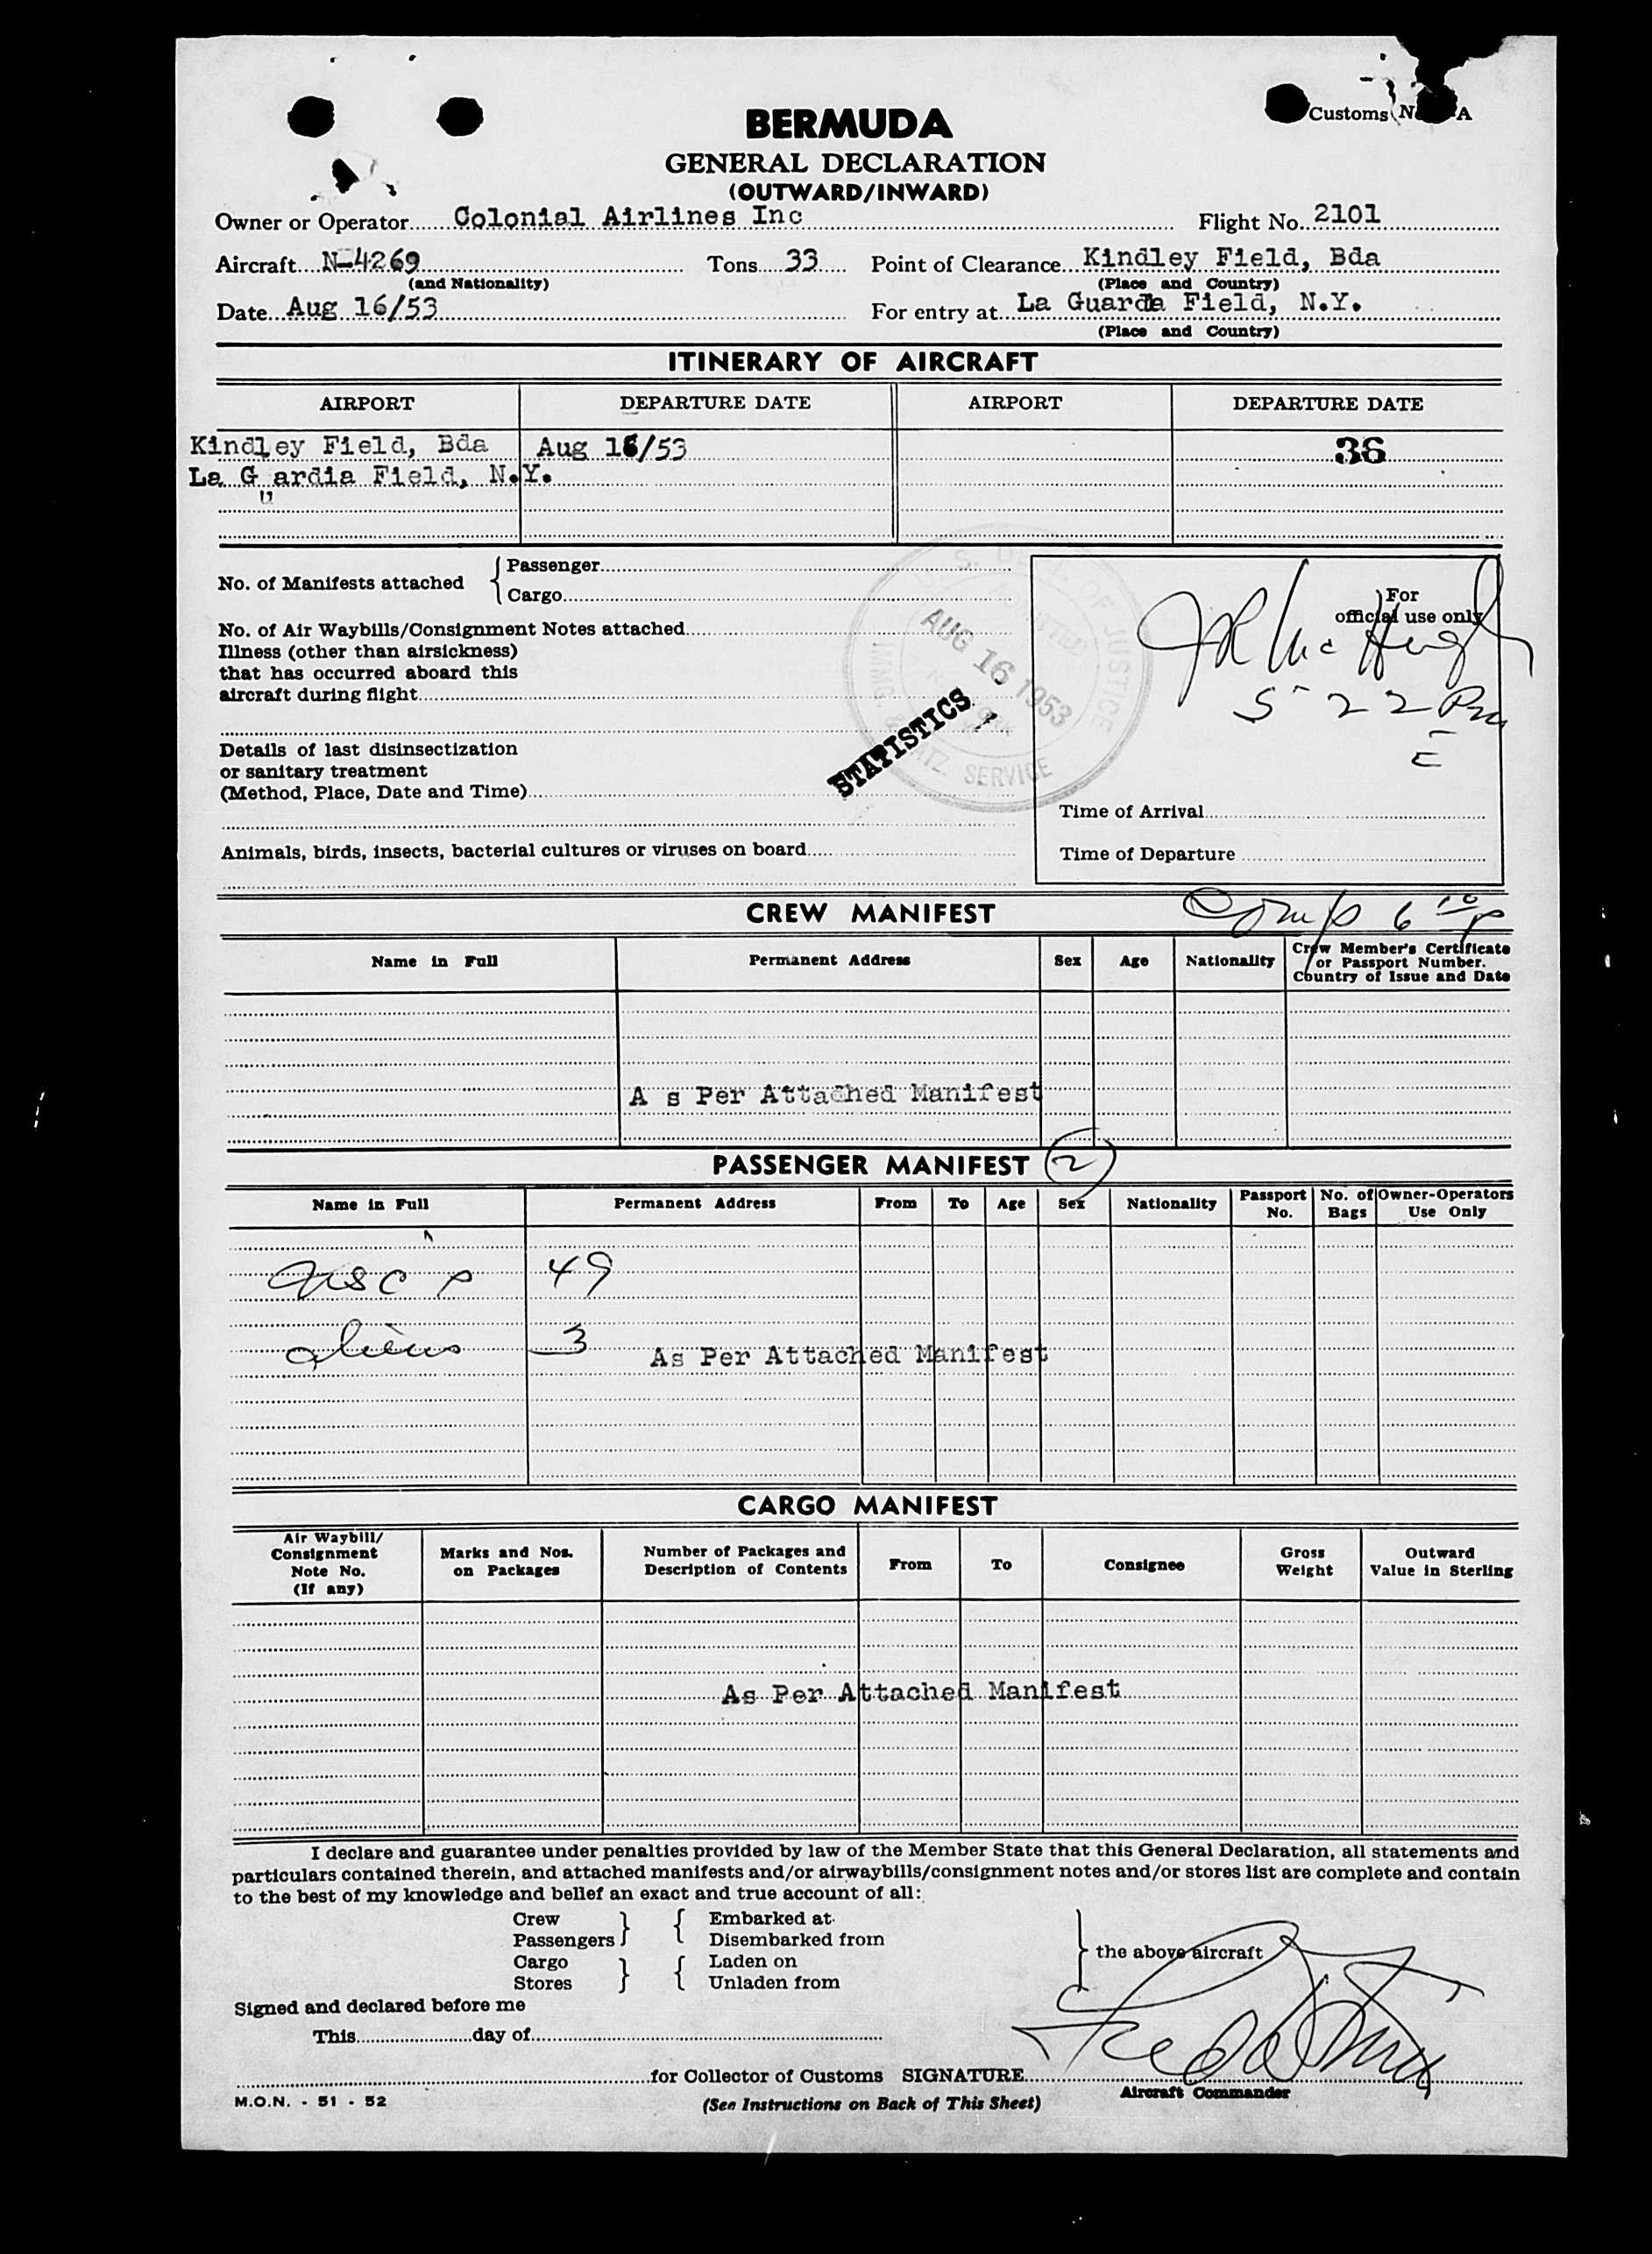 Customs N A
BERMUDA
GENERAL DECLARATION
(OUTWARD/INWARD)
Owner or Operator Colonial Airlines Inc Flight No. 2101
Aircraft N-4269 Tons 33 Point of Clearance Kindley Field, Bda
(and Nationality) (Place and Country)
Date Aug 16/53 For entry at La Guarda Field, N.Y.
(Place and Country)
ITINERARY OF AIRCRAFT
AIRPORT DEPARTURE DATE AIRPORT DEPARTURE DATE
Kindley Field, Bda Aug 16/53 36
La Guardia Field, N.Y.
No. of Manifests attached { Passenger
Cargo
No. of Air Waybills/Consignment Notes attached
Illness (other than airsickness)
that has occurred aboard this
aircraft during flight
Details of last disinsectization
or sanitary treatment
(Method, Place, Date and Time)
Animals, birds, insects, bacterial cultures or viruses on board
AUG 16 1953
OF JUSTICE
IMMG. & NATZ. SERVICE
STATISTICS
For
official use only
JR McHugh
5 22 PM
E
Time of Arrival
Time of Departure
CREW MANIFEST Comp 6 10 p
Name in Full Permanent Address Sex Age Nationality Crew Member's Certificate
or Passport Number.
Country of Issue and Date
A s Per Attached Manifest
PASSENGER MANIFEST 2
Name in Full Permanent Address From To Age Sex Nationality Passport No. No. of Bags Owner-Operators Use Only
USC's 49
aliens 3
As Per Attached Manifest
CARGO MANIFEST
Air Waybill/
Consignment
Note No.
(If any) Marks and Nos.
on Packages Number of Packages and
Description of Contents From To Consignee Gross
Weight Outward
Value in Sterling
As Per Attached Manifest
I declare and guarantee under penalties provided by law of the Member State that this General Declaration, all statements and
particulars contained therein, and attached manifests and/or airwaybills/consignment notes and/or stores list are complete and contain
to the best of my knowledge and belief an exact and true account of all:
Crew } { Embarked at
Passengers Disembarked from } the above aircraft
Cargo } { Laden on
Stores Unladen from
Signed and declared before me
This day of
for Collector of Customs SIGNATURE
Aircraft Commander
M.O.N. - 51 - 52 (See Instructions on Back of This Sheet)